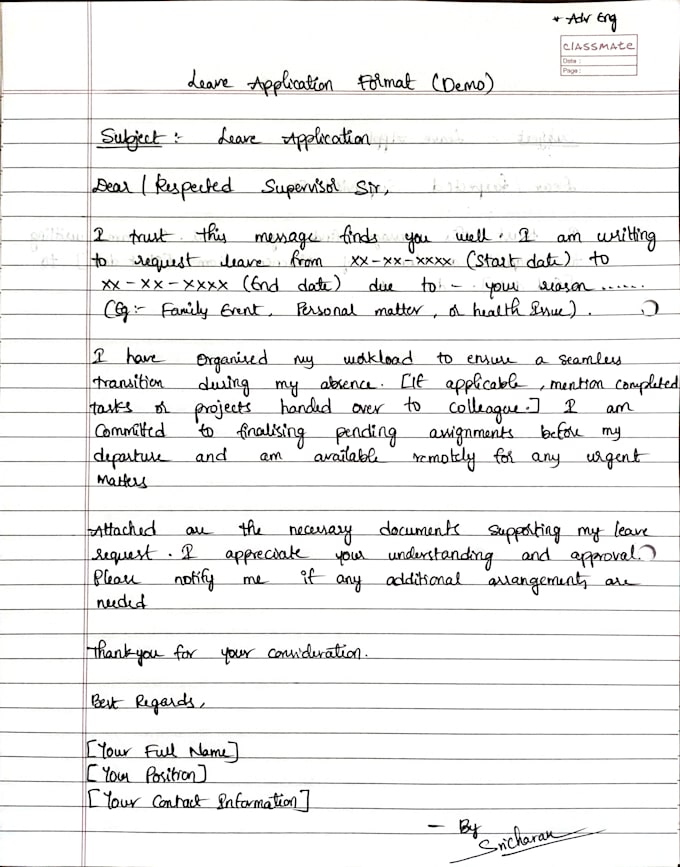 * Adv Eng
classmate
Date :
Page :
Leave Application Format (Demo)
Subject :- Leave Application
Dear / Respected Supervisor Sir,
I trust this message finds you well. I am writing
to request leave from xx-xx-xxxx (Start date) to
xx-xx-xxxx (End date) due to - your reason ......
(Eg:- Family Event, Personal matter, or health Issue).
I have organised my workload to ensure a seamless
transition during my absence. [If applicable, mention completed
tasks or projects handed over to colleague.] I am
Committed to finalising pending assignments before my
departure and am available remotely for any urgent
Matters
Attached are the necessary documents supporting my leave
request. I appreciate your understanding and approval.
Please notify me if any additional arrangements are
needed
Thank you for your consideration.
Best Regards,
[Your Full Name]
[Your Position]
[Your Contact Information]
- By
Sricharan